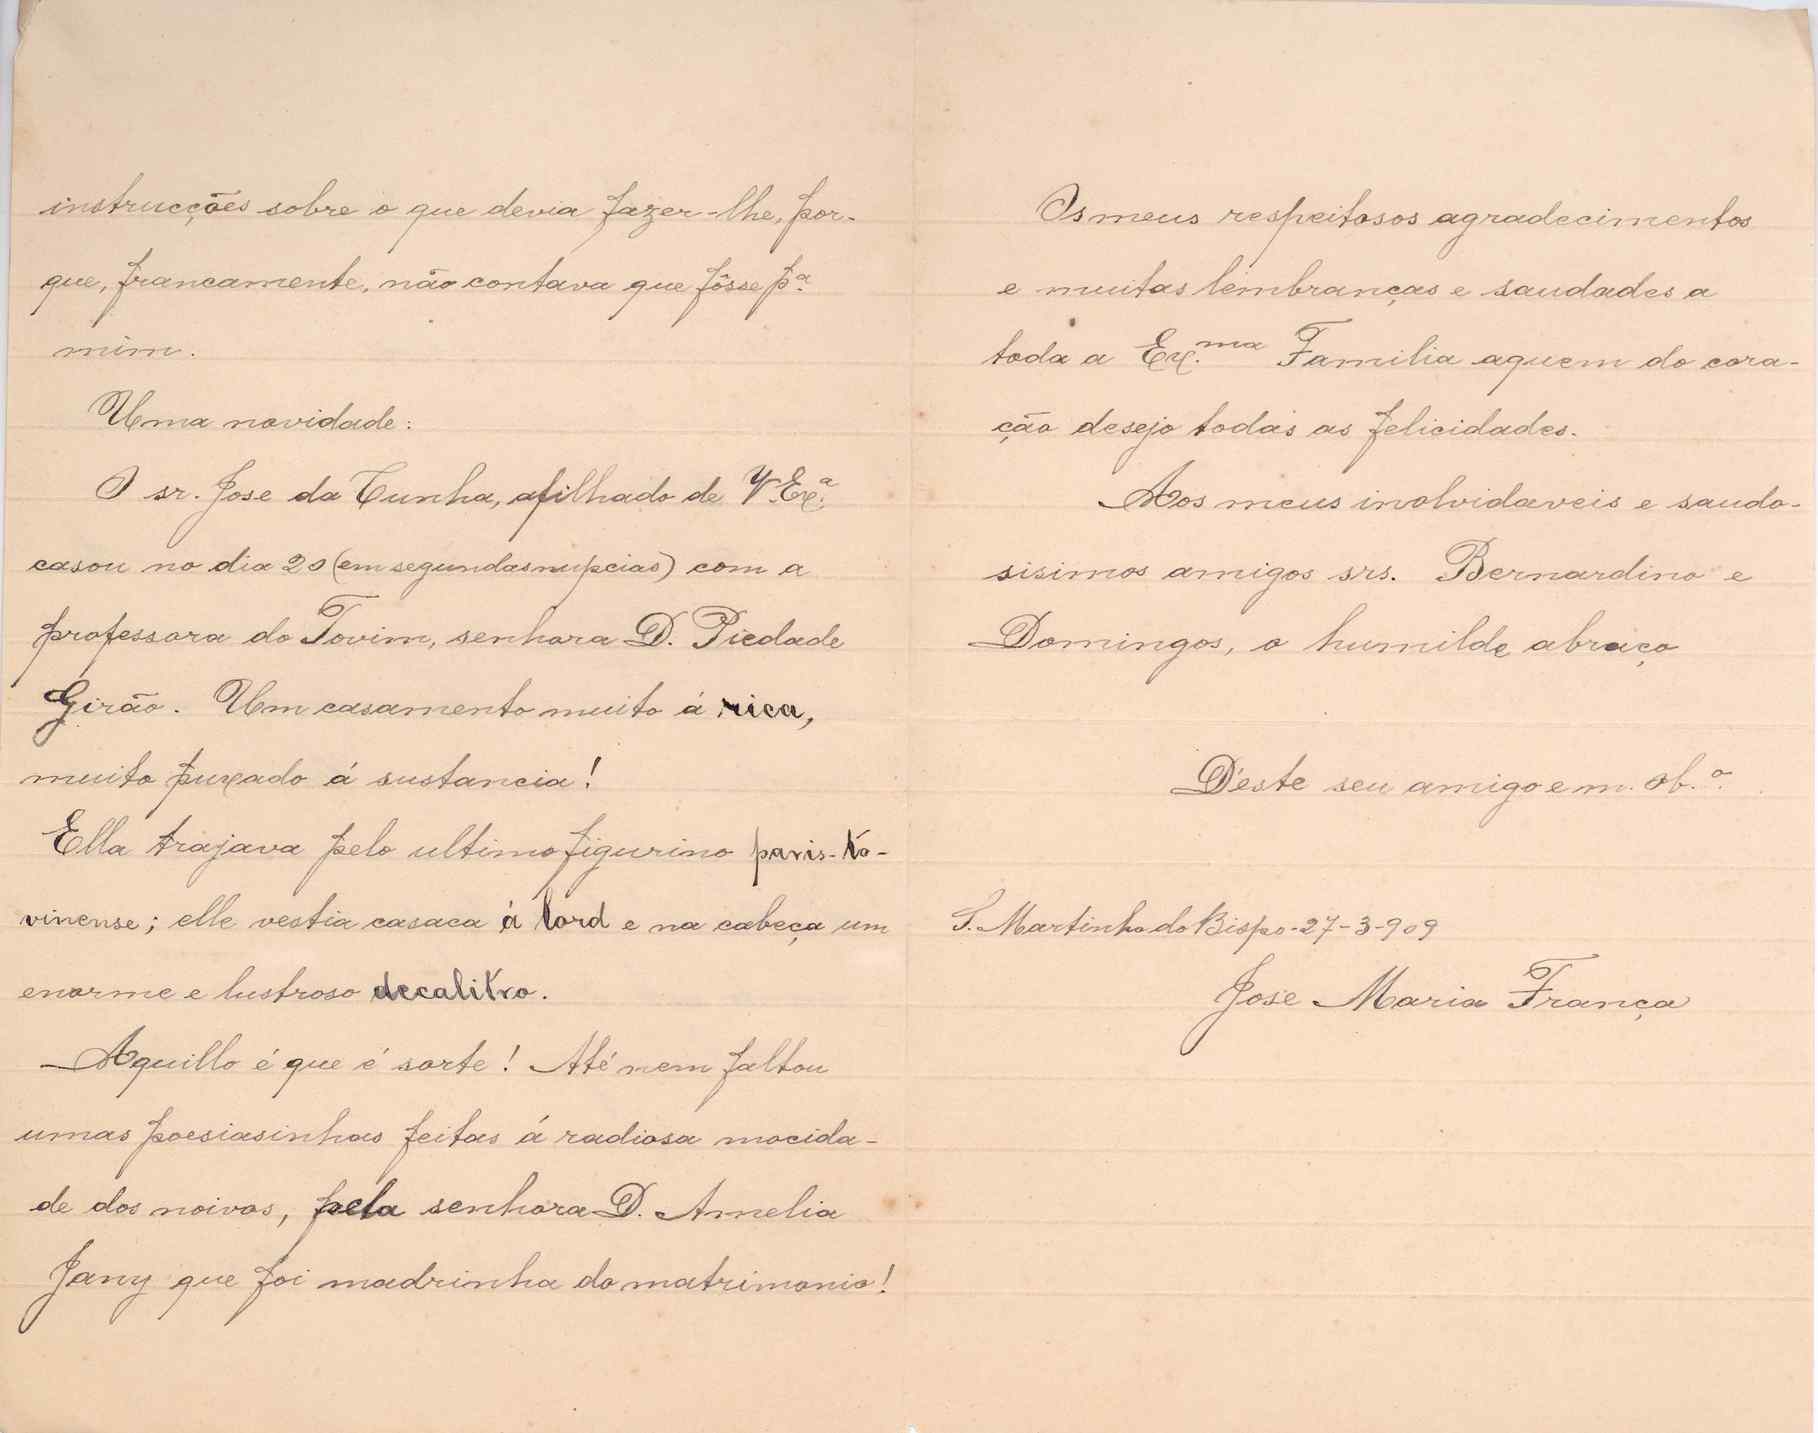 instrucções sobre o que devia fazer-lhe, por-
que, francamente, não contava que fôsse p.ª
mim.
Uma novidade:
O sr. Jose da Cunha, afilhado de V. Ex.ª
casou no dia 20 (em segundas nupcias) com a
professora do Tovim, senhora D. Piedade
Girão. Um casamento muito á rica,
muito puxado á sustancia!
Ella trajava pelo ultimo figurino paris-to-
vinense; elle vestia casaca á lord e na cabeça um
enorme e lustroso decalitro.
Aquillo é que é sorte! Até nem faltou
umas poesiasinhas feitas á radiosa mocida-
de dos noivos, pela senhora D. Amelia
Jany que foi madrinha do matrimonio!
Os meus respeitosos agradecimentos
e muitas lembranças e saudades a
toda a Ex.ma Familia aquem do cora-
ção desejo todas as felicidades.
Aos meus inolvidaveis e saudo-
sisimos amigos srs. Bernardino e
Domingos, o humilde abraço
D'este seu amigo e m. ob.º
S. Martinho do Bispo-27-3-909
Jose Maria França